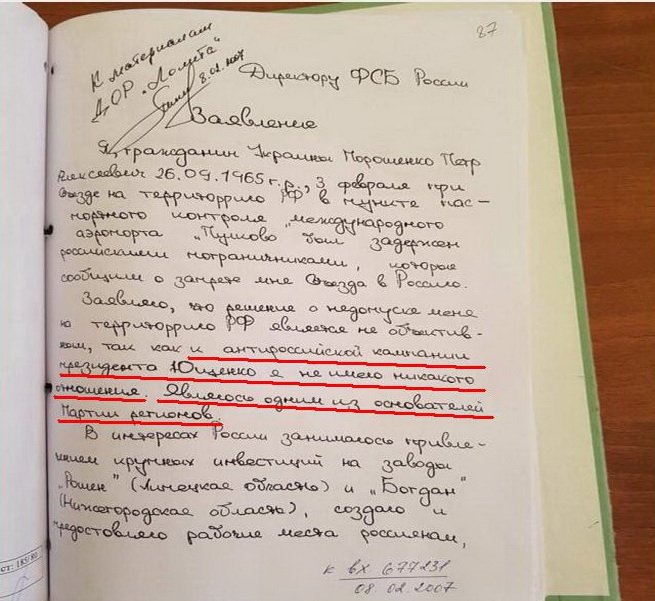 87
К материалам
ДОР „Лолита"
8.02.2007
Директору ФСБ России
Заявление
Я, гражданин Украины Порошенко Петр
Алексеевич 26.09.1965 г.р., 3 февраля при
въезде на территоррию РФ в пункте пас-
портного контроля „международного
аэропорта „Пулково был задержан
российскими пограничниками, которые
сообщили о запрете мне въезда в Россию.
Заявляю, что решение о недопуске меня
на территоррию РФ является не объектив-
ным, так как к антироссийской кампании
президента Ющенко я не имею никакого
отношения. Являюсь одним из основателей
Партии регионов.
В интересах России занимаюсь привле-
чением крупных инвестиций на заводы
„Рошен" (Липецкая область) и „Богдан"
(Нижегородская область), создаю и
предоставляю рабочие места россиянам,
к вх 677231
08.02.2007